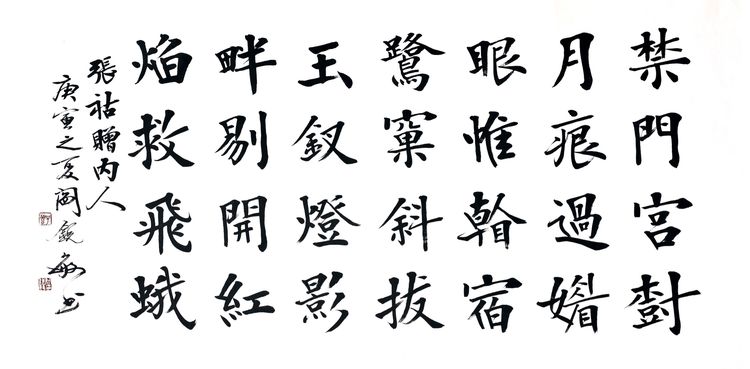 禁門宮樹
月痕過媚
眼惟看宿
鷺窠斜拔
玉釵燈影
畔剔開紅
焰救飛蛾
張祜贈內人
庚寅之夏閻書